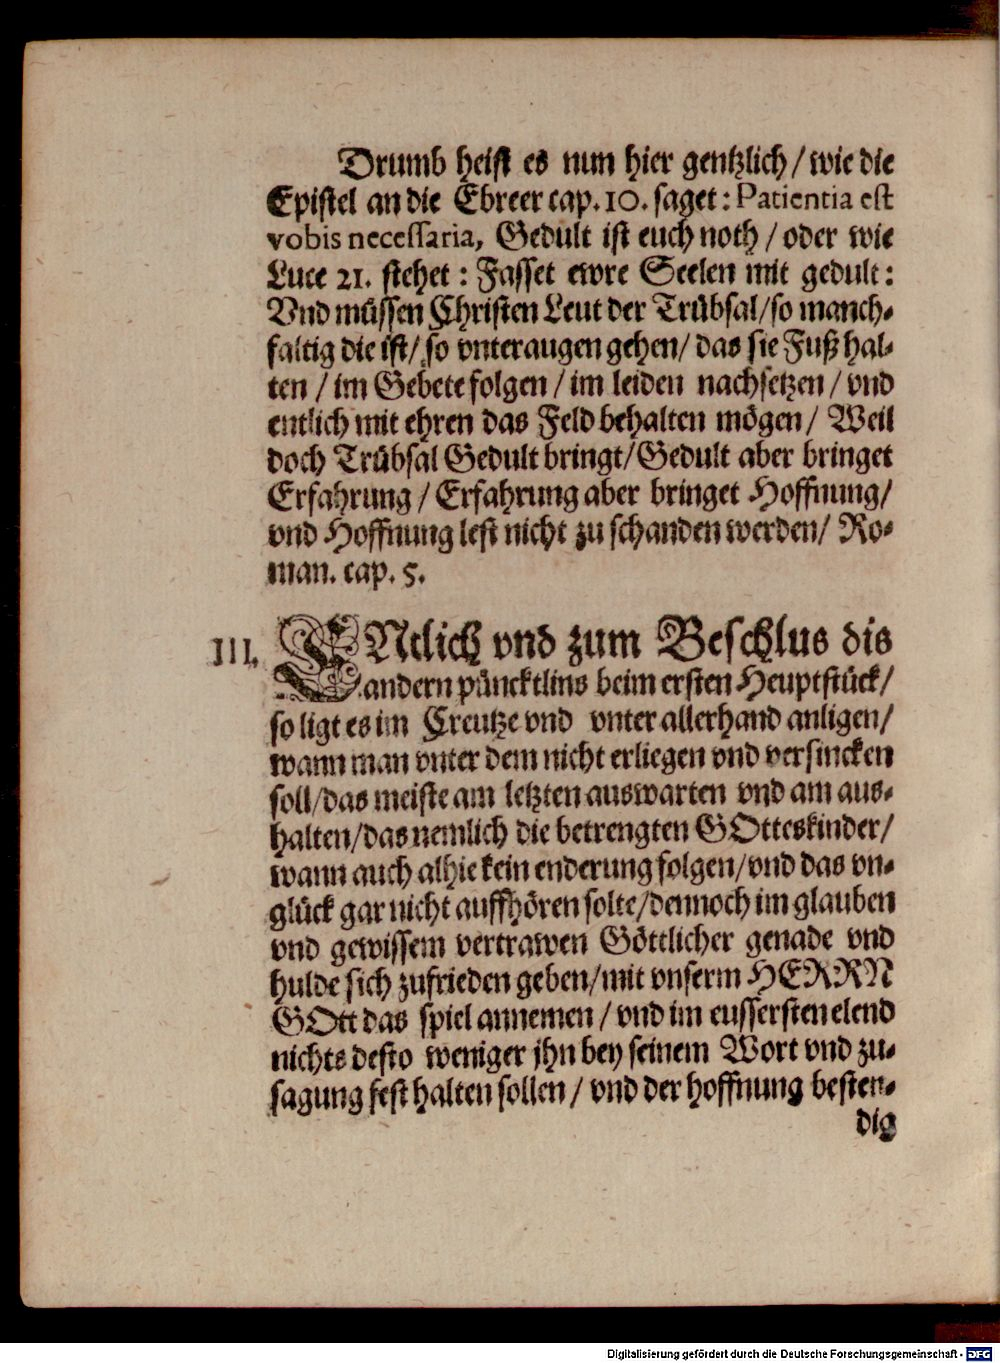 Drumb heist es nun hier gentzlich / wie die
Epistel an die Ebreer cap. 10. saget: Patientia est
vobis necessaria, Gedult ist euch noth / oder wie
Luce 21. stehet : Fasset ewre Seelen mit gedult:
Vnd müssen Christen Leut der Trübsal/so manch-
faltig die ist/ so vnteraugen gehen/ das sie Fuß hal-
ten / im Gebete folgen / im leiden nachsetzen / vnd
entlich mit ehren das Feld behalten mögen/ Weil
doch Trübsal Gedult bringt/Gedult aber bringet
Erfahrung / Erfahrung aber bringet Hoffnung/
vnd Hoffnung lest nicht zu schanden werden/ Ro-
man. cap. 5.
III. ENtlich vnd zum Beschlus dis
andern püncktlins beim ersten Heuptstück/
so ligt es im Creutze vnd vnter allerhand anligen/
wann man vnter dem nicht erliegen vnd versincken
soll/das meiste am letzten auswarten vnd am aus-
halten/das nemlich die betrengten GOtteskinder/
wann auch alhie kein enderung folgen/vnd das vn-
glück gar nicht auffhören solte/dennoch im glauben
vnd gewissem vertrawen Göttlicher genade vnd
hulde sich zufrieden geben/mit vnserm HERRN
GOtt das spiel annemen / vnd im eussersten elend
nichts desto weniger jhn bey seinem Wort vnd zu-
sagung fest halten sollen / vnd der hoffnung besten-
dig
Digitalisierung gefördert durch die Deutsche Forschungsgemeinschaft - DFG